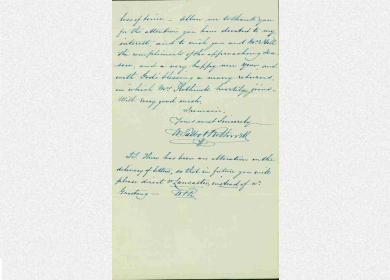 loss of time — Allow me to thank you
for the attention you have devoted to my
interest, and to wish you and Mrs Hall
the compliments of the approaching Sea-
son, and a very happy new year and
with God's blessing a many returns,
in which Mrs Rothwell heartily joins —
With very good wish,
I remain,
Yours most Sincerely
P.S. There has been an alteration in the
delivery of letters, so that in future you will
please direct Lancaster, instead of
Garstang —